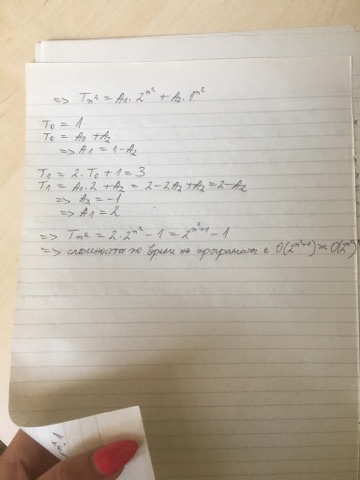 => Tn² = A1.2^n² + A2.1^n²
T0 = 1
T0 = A1 + A2
=> A1 = 1 - A2
T1 = 2.T0 + 1 = 3
T1 = A1.2 + A2 = 2 - 2A2 + A2 = 2 - A2
=> A2 = -1
=> A1 = 2
=> Tn² = 2.2^n² - 1 = 2^(n²+1) - 1
=> сложността по време на програмата е O(2^(n²+1)) ≍ O(2^n²)